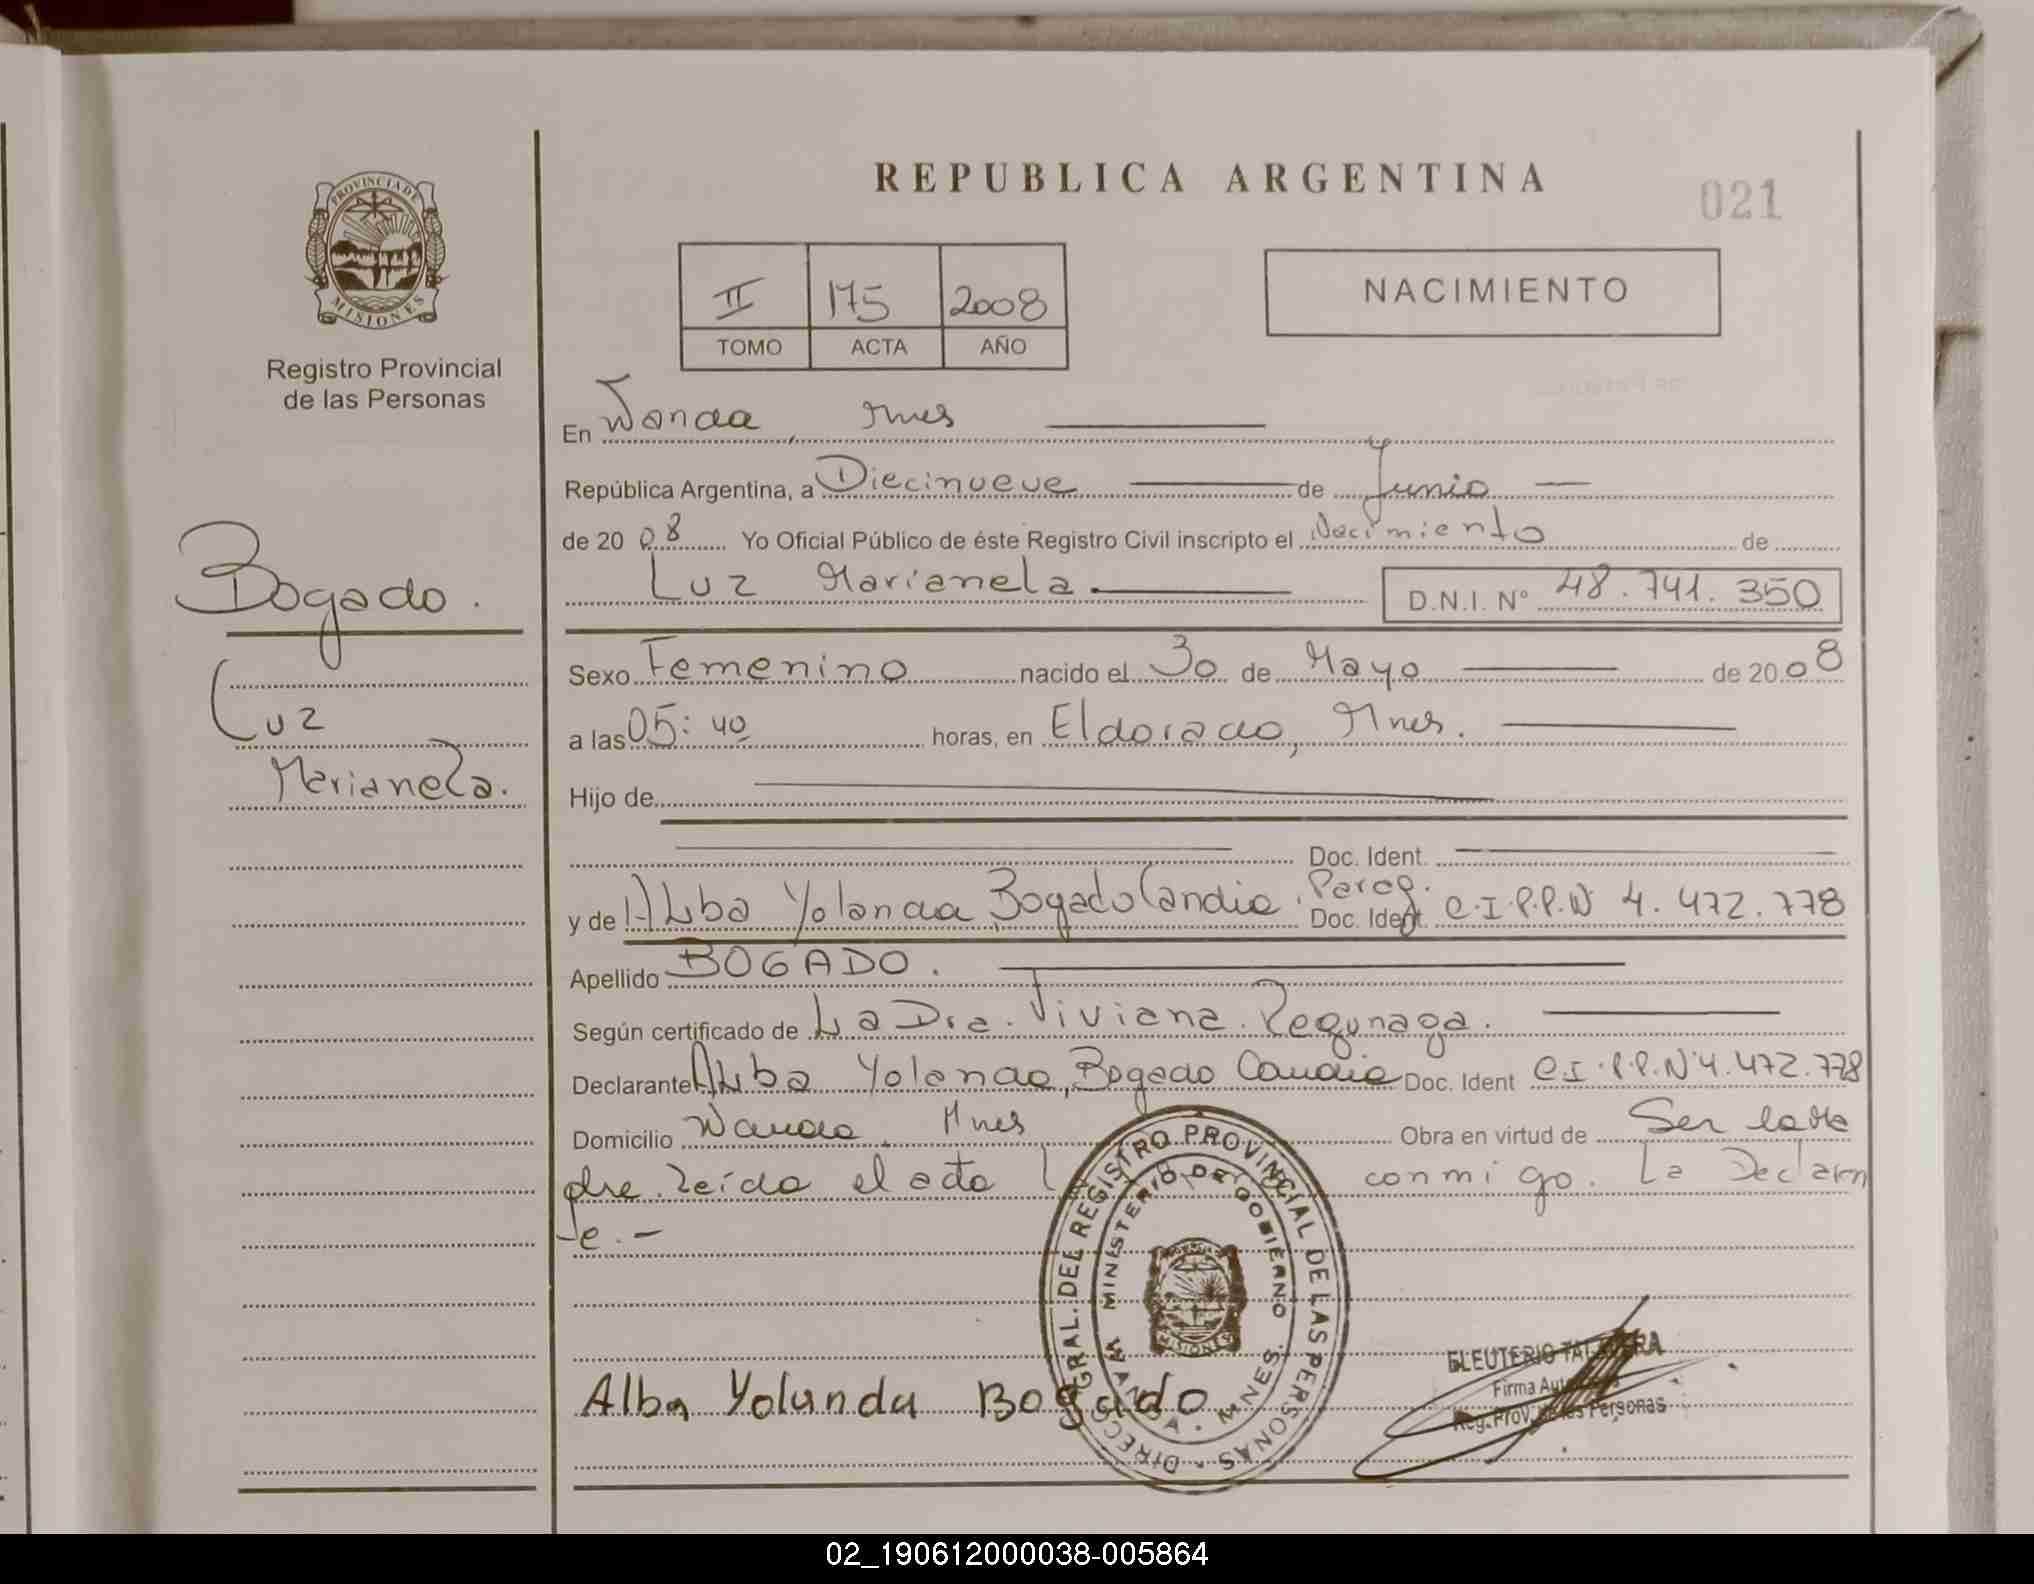 REPUBLICA ARGENTINA
021
PROVINCIA DE
MISIONES
Registro Provincial
de las Personas
II 175 2008
TOMO ACTA AÑO
NACIMIENTO
Bogado.
Luz
Marianela.
En Wanda, Mnes
República Argentina, a Diecinueve de Junio
de 2008 Yo Oficial Público de éste Registro Civil inscripto el Nacimiento de
Luz Marianela D.N.I. Nº 48.741.350
Sexo Femenino nacido el 30 de Mayo de 2008
a las 05:40 horas, en Eldorado, Mnes.
Hijo de
Doc. Ident.
y de Alba Yolanda, Bogado Candia. Parag. Doc. Ident. C.I.P.P.Nº 4.472.778
Apellido BOGADO.
Según certificado de La Dra. Viviana
Declarante Alba Yolanda, Bogado Candia Doc. Ident C.I.P.P.Nº 4.472.778
Domicilio Wanda, Mnes Obra en virtud de Ser la Ma
dre. Leída el acta conmigo. La Declaran
te.-
DIRECC. GRAL. DEL REGISTRO PROVINCIAL DE LAS PERSONAS
MINISTERIO DE GOBIERNO
WANDA - MNES.
MISIONES
Alba Yolanda Bogado
ELEUTERIO TALAVERA
Firma
Reg. Prov. de las Personas
02_190612000038-005864